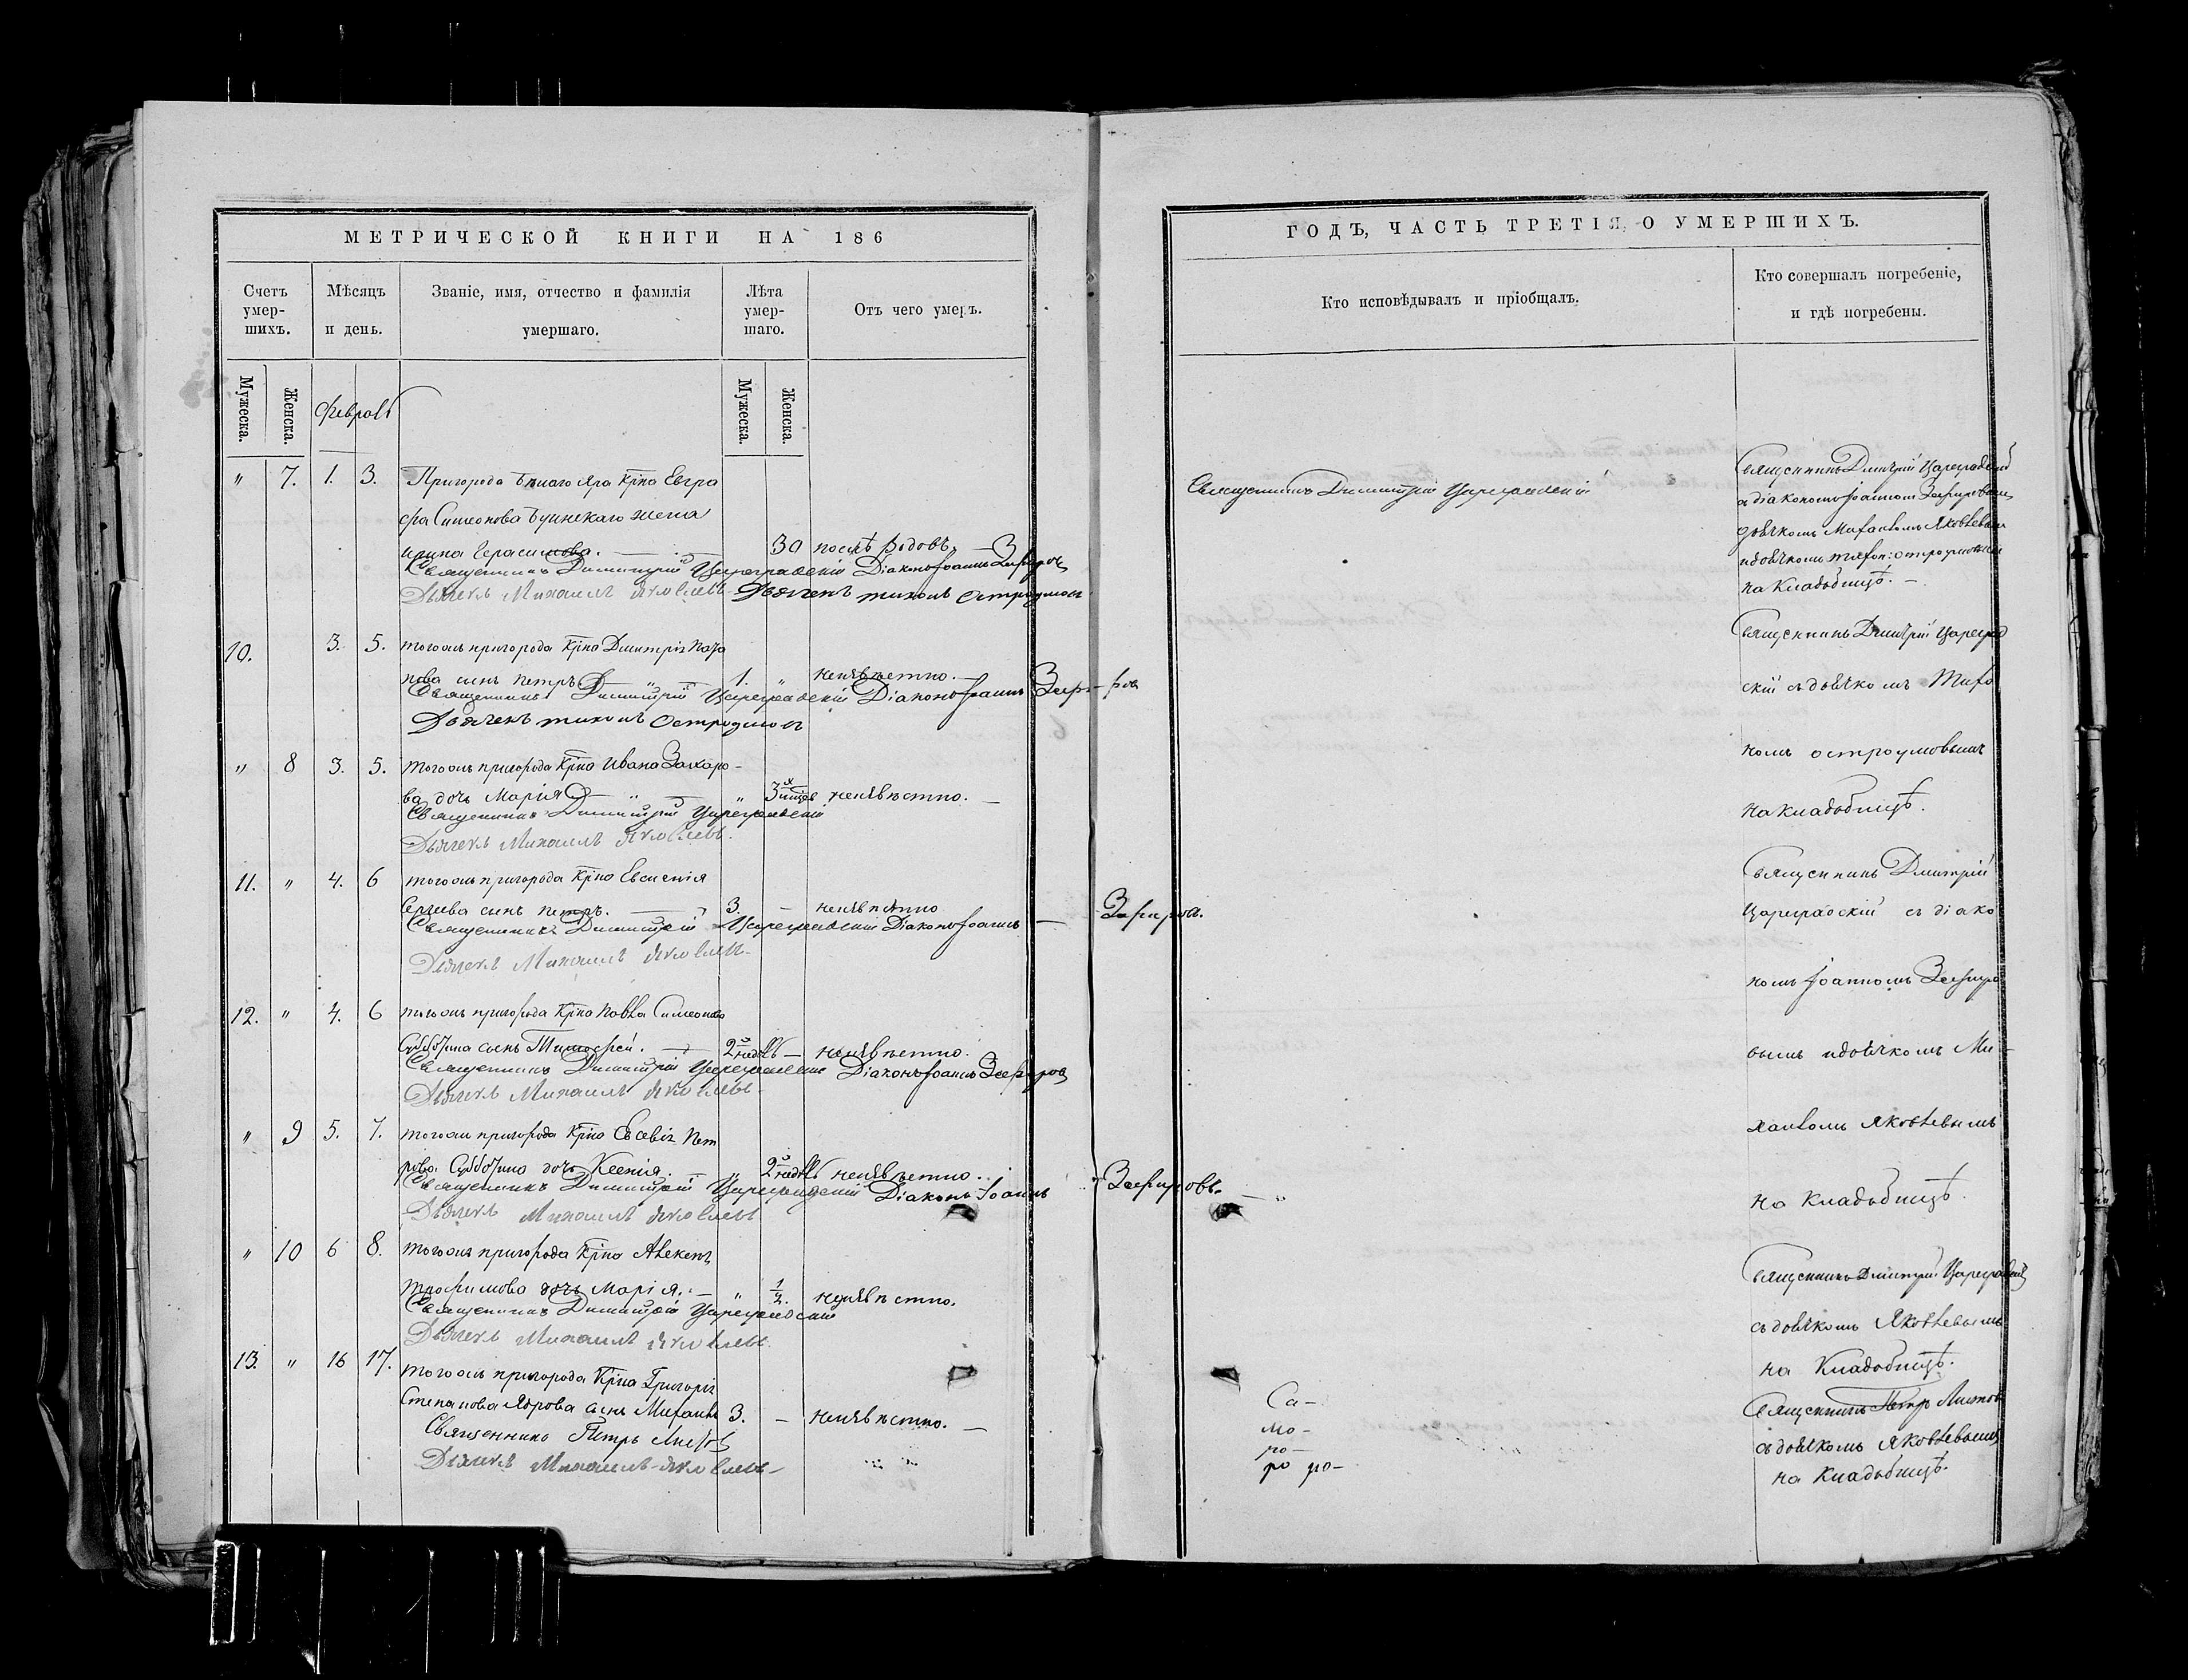 МЕТРИЧЕСКОЙ КНИГИ НА 186
Счетъ умер-шихъ.
Мѣсяцъ и день.
Званіе, имя, отчество и фамилія умершаго.
Лѣта умер-шаго.
Отъ чего умеръ.
Мужеска.
Женска.
Февраль
Мужеска.
Женска.
" 7. 1. 3. Пригорода Бѣлаго Яра Крⷭ҇на Евгра
фа Симеонова Буинскаго жена
ирина Герасимова. — 30 послѣ родовъ. —
Священникъ Димитрій Цареградскій Діаконъ Іоаннъ Зефировъ
Дьячекъ Михаилъ Яковлевъ Дьячекъ тихонъ Остроумовъ
10. 3. 5. тогожъ пригорода Крⷭ҇на Димитрія
сынъ петръ — " — 1. " неизвѣстно. —
Священникъ Димитрій Цареградскій Діаконъ Іоаннъ Зефировъ
Дьячекъ тихонъ Остроумовъ
" 8 3. 5. тогожъ пригорода Крⷭ҇на Ивана Захаро-
ва дочь Марія — " — " 3 неизвѣстно. —
Священникъ Димитрій Цареградскій
Дьячекъ Михаилъ Яковлевъ.
11. " 4. 6 тогожъ пригорода Крⷭ҇на Евсигнія
сынъ петръ. — 3. — неизвѣстно
Священникъ Димитрій Цареградскій Діаконъ Іоаннъ — Зефировъ.
Дьячекъ Михаилъ Яковлевъ-
12. " 4. 6 тогожъ пригорода Крⷭ҇на Павла Симеонова
Субботина сынъ Тимофей. — 2 недѣль — неизвѣстно.
Священникъ Димитрій Цареградскій Діаконъ Іоаннъ Зефировъ
Дьячекъ Михаилъ Яковлевъ-
" 9 5. 7. тогожъ пригорода Крⷭ҇на Евсевія Пет
рова Субботина дочь Ксенія. " 2 недѣль неизвѣстно.
Священникъ Димитрій Цареградскій Діаконъ Іоаннъ Зефировъ. — "
Дьячекъ Михаилъ Яковлевъ
" 10 6 8. тогожъ пригорода Крⷭ҇на Алексея
Трофимова дочь Марія. — " 1/2. неизвѣстно.
Священникъ Димитрій Цареградскій
Дьячекъ Михаилъ Яковлевъ.
13. " 16 17. тогожъ пригорода Крⷭ҇на Григорія
Степанова Ядрова сынъ Михаилъ 3. — неизвѣстно. —
Священникъ Петръ Листовъ
Дьячекъ Михаилъ Яковлевъ-
ГОДЪ, ЧАСТЬ ТРЕТІЯ, О УМЕРШИХЪ.
Кто исповѣдывалъ и пріобщалъ.
Кто совершалъ погребеніе, и гдѣ погребены.
Священникъ Димитрій Цареградскій
Священникъ Дмитрій Цареградскій
съ діакономъ Іоанномъ Зефировымъ
дьячкомъ Михаиломъ Яковлевымъ
и дьячкомъ Тихон: остроумовымъ
на Кладбищѣ. —
Священникъ Дмитрій Цареград
скій съ дьячкомъ Тихо
номъ остроумовымъ
на кладбищѣ.
Священникъ Дмитрій
Цареградскій съ діако
номъ Іоанномъ Зефиро
вымъ и дьячкомъ Ми-
хаиломъ Яковлевымъ
на Кладбищѣ.
Священникъ Дмитрій Цареградскій
съ дьячкомъ Яковлевымъ
на Кладбищѣ.
Са-
мо-
ро-
Священникъ Петръ Листовъ
съ дьячкомъ Яковлевымъ
на Кладбищѣ.